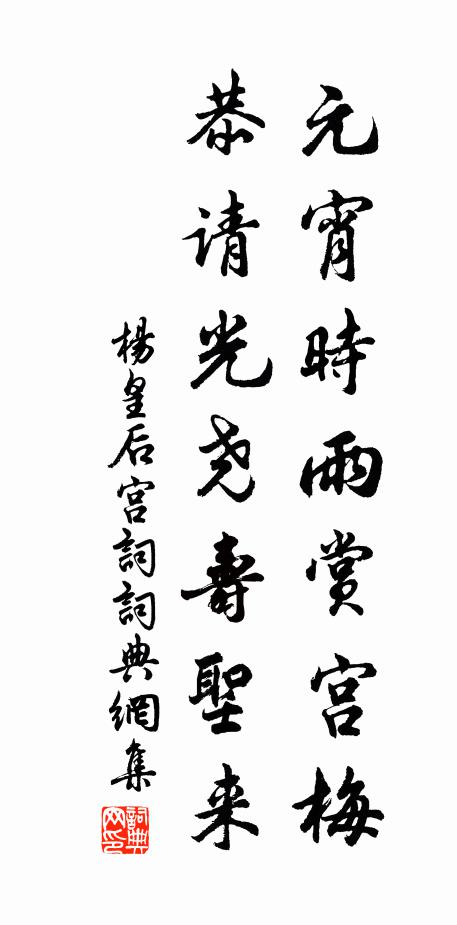 元宵時雨赏宫梅
恭请光尧壽聖来
楊皇后宫詞詞典網集
詞典网印